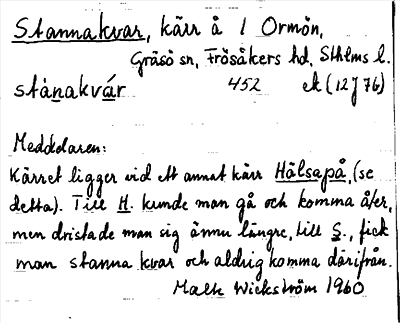 Stannakvar, kärr å l Ormön,
Gräsö sn, Frösåkers hd, Sthlms l.
stánakvár 452 ek (12 J 7b)
Meddelaren:
Kärret ligger vid ett annat kärr Hälsapå, (se
detta). Till H. kunde man gå och komma åter,
men dristade man sig ännu längre, till S., fick
man stanna kvar och aldrig komma därifrån.
Mats Wickström 1960